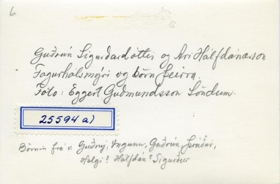 6
Guðrún Sigurðardóttir og Ari Hálfdánarson
Fagurhólsmýri og börn þeirra
Foto: Eggert Guðmundsson Söndum
25594 a)
Börnin frá v Guðný, Ingunn, Guðrún
Helgi? Hálfdán? Sigurður